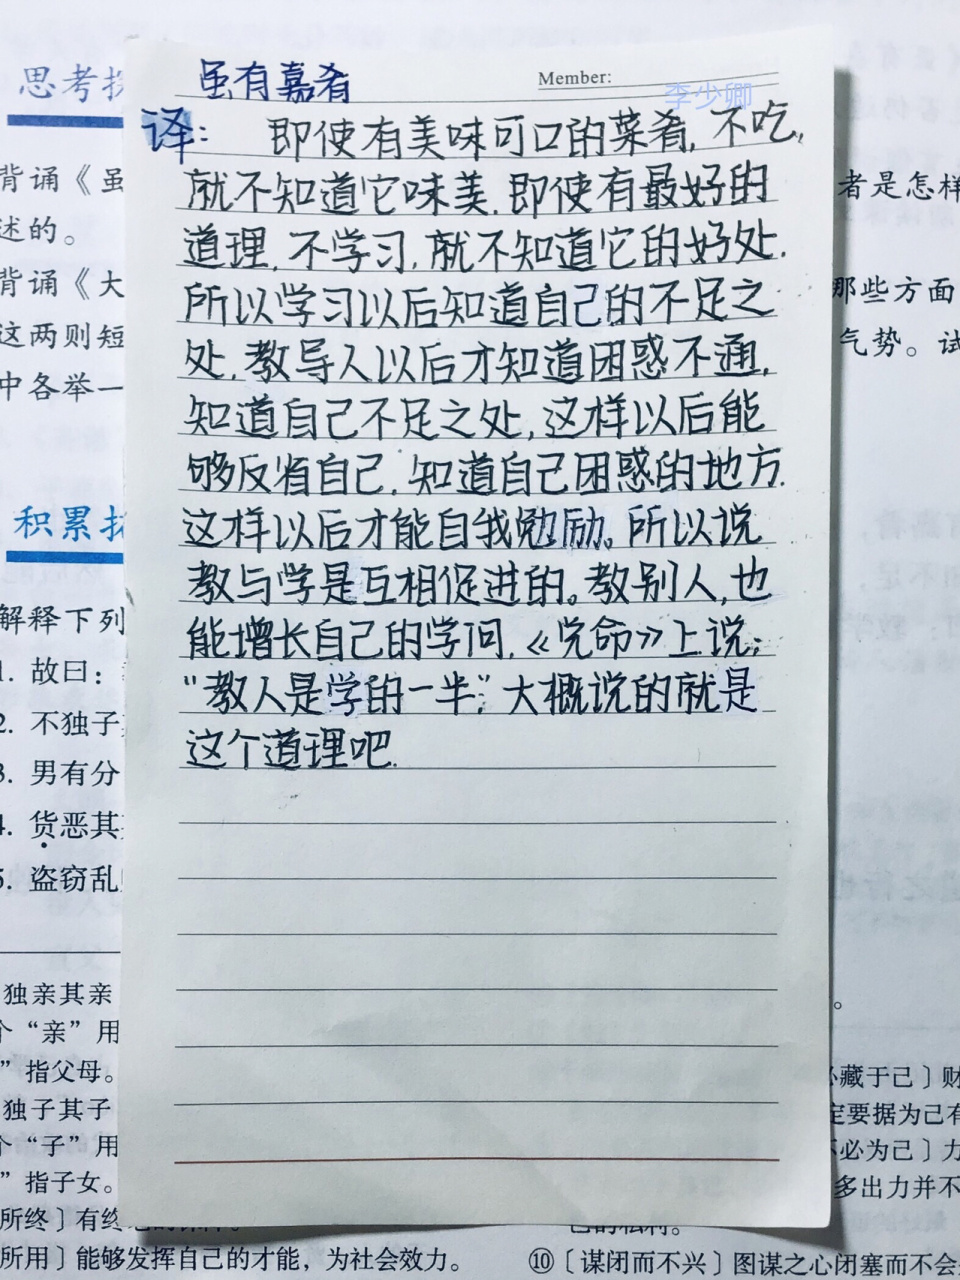 虽有嘉肴
Member:
李少卿
译: 即使有美味可口的菜肴,不吃,
就不知道它味美.即使有最好的
道理,不学习,就不知道它的好处.
所以学习以后知道自己的不足之
处,教导人以后才知道困惑不通,
知道自己不足之处,这样以后能
够反省自己.知道自己困惑的地方.
这样以后才能自我勉励。所以说
教与学是互相促进的。教别人,也
能增长自己的学问,《兑命》上说:
“教人是学的一半”;大概说的就是
这个道理吧.
思考探
背诵《虽
述的。
背诵《大
这两则短
中各举一
积累拓
解释下列
1. 故曰:
2. 不独子
3. 男有分
4. 货恶其
5. 盗窃乱
独亲其亲
个“亲”用
”指父母。
独子其子
个“子”用
”指子女。
所终〕有终
所用〕能够发挥自己的才能,为社会效力。
者是怎样
那些方面
气势。试
藏于己〕财
定要据为己有
不必为己〕力
多出力并不
⑩〔谋闭而不兴〕图谋之心闭塞而不会